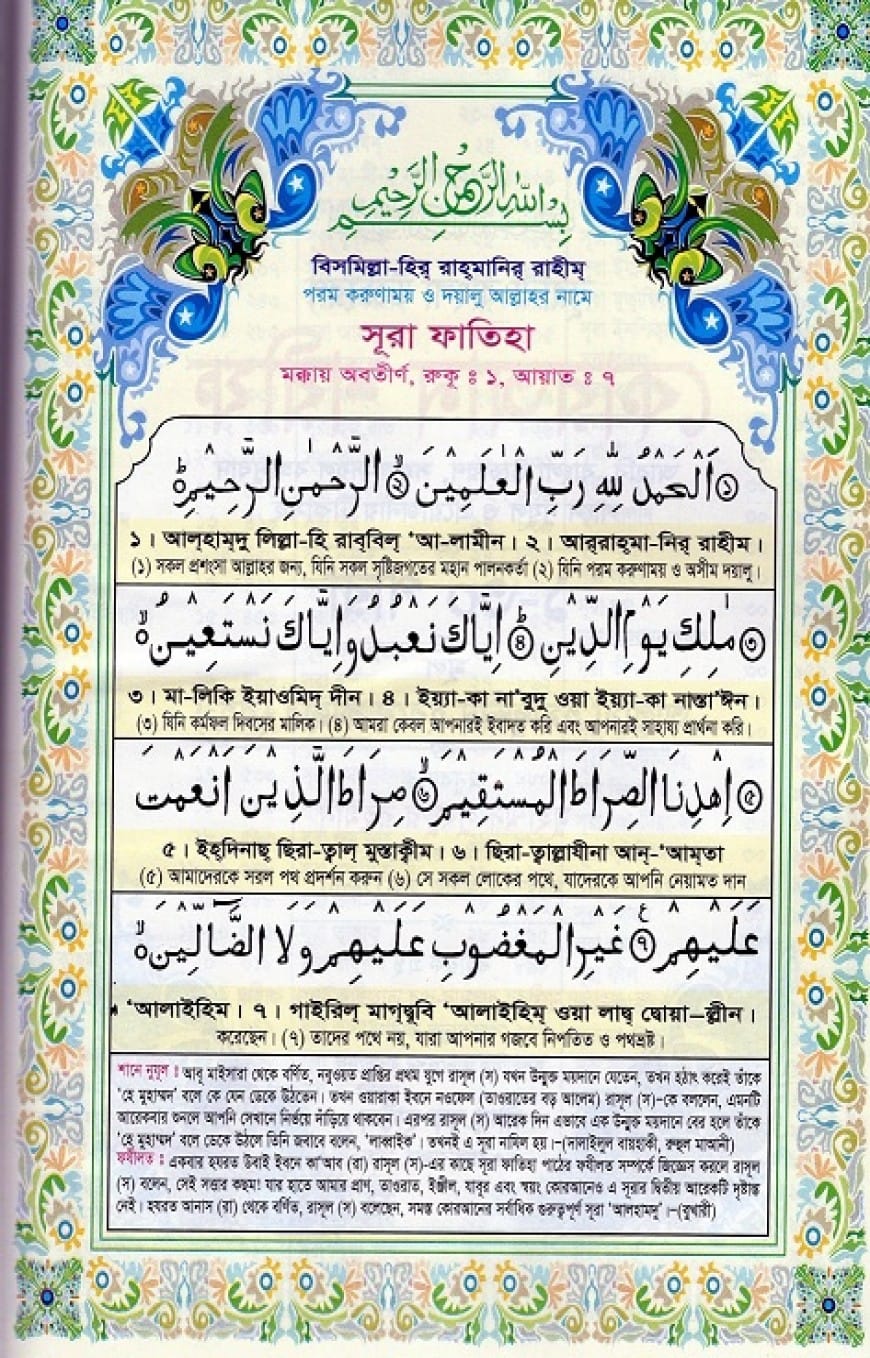 بِسْمِ اللهِ الرَّحْمٰنِ الرَّحِيْمِ
বিসমিল্লা-হির্ রাহ্‌মানির্ রাহীম্
পরম করুণাময় ও দয়ালু আল্লাহর নামে
সূরা ফাতিহা
মক্কায় অবতীর্ণ, রুকূ ঃ ১, আয়াত ঃ ৭
①اَلْحَمْدُ لِلّٰهِ رَبِّ الْعٰلَمِيْنَ ۙ②الرَّحْمٰنِ الرَّحِيْمِ ۙ
১। আল্‌হাম্‌দু লিল্লা-হি্ রাব্‌বিল্ ‘আ-লামীন। ২। আর্‌রাহ্‌মা-নির্ রাহীম।
(১) সকল প্রশংসা আল্লাহর জন্য, যিনি সকল সৃষ্টিজগতের মহান পালনকর্তা (২) যিনি পরম করুণাময় ও অসীম দয়ালু।
③مٰلِكِ يَوْمِ الدِّيْنِ ؕ④اِيَّاكَ نَعْبُدُ وَاِيَّاكَ نَسْتَعِيْنُ ؕ
৩। মা-লিকি ইয়াওমিদ্ দীন। ৪। ইয়্যা-কা না‘বুদু ওয়া ইয়্যা-কা নাস্তা‘ঈন।
(৩) যিনি কর্মফল দিবসের মালিক। (৪) আমরা কেবল আপনারই ইবাদত করি এবং আপনারই সাহায্য প্রার্থনা করি।
⑤اِهْدِنَا الصِّرَاطَ الْمُسْتَقِيْمَ ۙ⑥صِرَاطَ الَّذِيْنَ اَنْعَمْتَ
৫। ইহ্‌দিনাছ্ ছিরা-ত্বাল্ মুস্তাক্বীম। ৬। ছিরা-ত্বাল্লাযীনা আন্-‘আম্‌তা
(৫) আমাদেরকে সরল পথ প্রদর্শন করুন (৬) সে সকল লোকের পথে, যাদেরকে আপনি নেয়ামত দান
عَلَيْهِمْ ⑦ غَيْرِ الْمَغْضُوْبِ عَلَيْهِمْ وَلَا الضَّآلِّيْنَ
‘আলাইহিম। ৭। গাইরিল্ মাগ্‌দ্বূবি ‘আলাইহিম্ ওয়া লাদ্ব্ দ্বোয়া–ল্লীন।
করেছেন। (৭) তাদের পথে নয়, যারা আপনার গজবে নিপতিত ও পথভ্রষ্ট।
শানে নুযূল ঃ আবূ মাইসারা থেকে বর্ণিত, নবুওয়ত প্রাপ্তির প্রথম যুগে রাসূল (স) যখন উন্মুক্ত ময়দানে যেতেন, তখন হঠাৎ করেই তাঁকে
‘হে মুহাম্মদ’ বলে কে যেন ডেকে উঠতেন। তখন ওয়ারাকা ইবনে নওফেল (তাওরাতের বড় আলেম) রাসূল (স)-কে বললেন, এমনটি
আরেকবার শুনলে আপনি সেখানে নির্ভয়ে দাঁড়িয়ে থাকবেন। এরপর রাসূল (স) আরেক দিন এভাবে এক উন্মুক্ত ময়দানে বের হলে তাঁকে
‘হে মুহাম্মদ’ বলে ডেকে উঠলে তিনি জবাবে বলেন, ‘লাব্বাইক’। তখনই এ সূরা নাযিল হয়।-(দালাইলুল বায়হাকী, রুহুল মাআনী)
ফযীলত ঃ একবার হযরত উবাই ইবনে কা‘আব (রা) রাসূল (স)-এর কাছে সূরা ফাতিহা পাঠের ফযীলত সম্পর্কে জিজ্ঞেস করলে রাসূল
(স) বলেন, সেই সত্তার কছম! যার হাতে আমার প্রাণ, তাওরাত, ইঞ্জীল, যাবূর এবং স্বয়ং কোরআনেও এ সূরার দ্বিতীয় আরেকটি দৃষ্টান্ত
নেই। হযরত আনাস (রা) থেকে বর্ণিত, রাসূল (স) বলেছেন, সমস্ত কোরআনের সর্বাধিক গুরুত্বপূর্ণ সূরা ‘আলহামদু’।-(বুখারী)